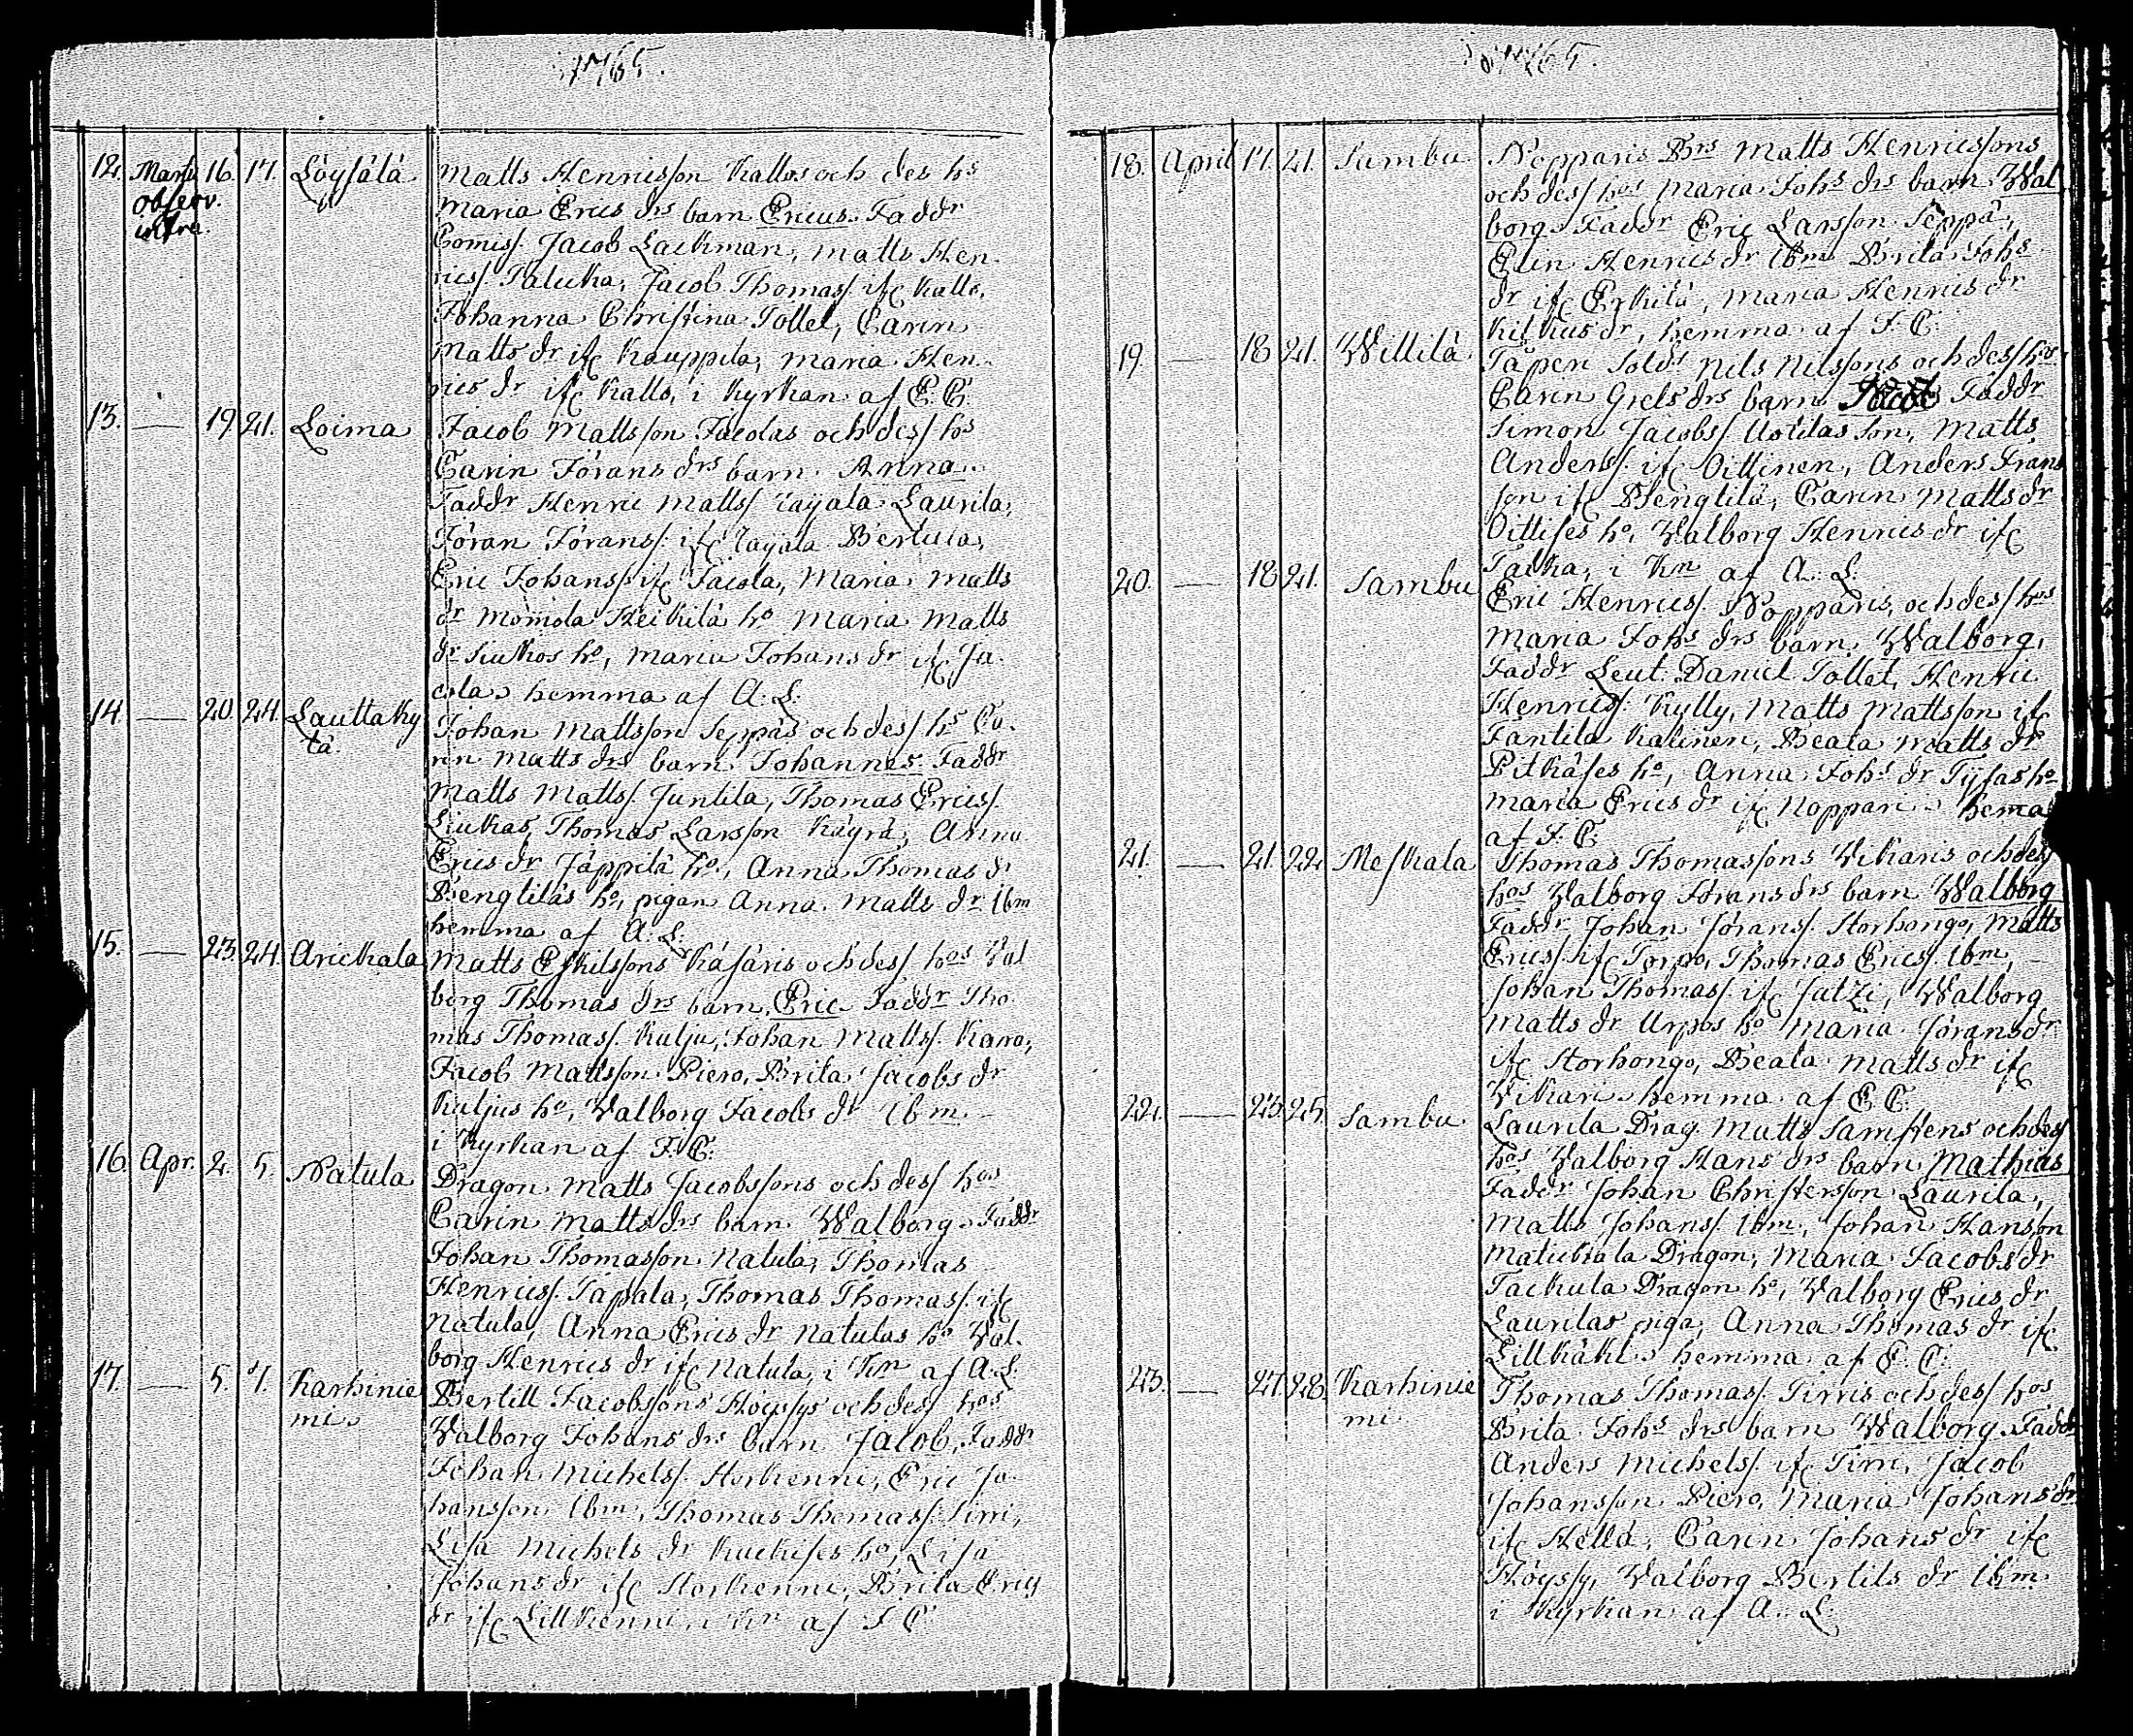 1765.
12. Martii 16. 17. Löysälä Matts Henricsson Kallos och des hs
observ. Maria Erics drs barn Ericus. Faddr
infra. Comiss. Jacob Lackman, Matts Hen-
rics/. Palukka, Jacob Thomas/. ifr Kallo,
Johanna Christina Tollet, Carin
Matts dr ifr Kauppila, Maria Hen-
rics dr ifr Kallo, i Kyrkan af E. C.
13. — 19 21. Loima Jacob Mattsson Jacolas och des/ hs
Carin Jörans drs barn Anna.
Faddr Henric Matts/. Laurila,
Jöran Jörans/. ifr Bertula,
Eric Johans/. ifr Jacola, Maria Matts
dr Momola Heikilä ho Maria Matts
dr Siukos ho, Maria Johans dr ifr Ja-
cola, hemma af A. L.
14. — 20. 24. Lauttaky Johan Mattsson Seppäs och des/ hs Ca-
tä. rin Matts drs barn Johannes. Faddr
Matts Matts/. Juntila, Thomas Erics/.
Liukas, Thomas Larsson Käyrä, Anna
Erics dr Jäppilä ho, Anna Thomas dr
Bengtiläs ho, pigan Anna Matts dr ibm
hemma af A. L.
15. — 23. 24. Arickala Matts Eskilssons Käsäris och des/ hos Val
borg Thomas drs barn Eric. Faddr Tho-
mas Thomas/. Kulju, Johan Matts/. Karo,
Jacob Mattsson Piero, Brita Jacobs dr
Kuljus ho, Walborg Jacobs dr ibm.
i Kyrkan af J. C.
16. Apr. 2. 5. Natula Dragon Matts Jacobssons och des/ hos
Carin Matts drs barn Walborg. Faddr
Johan Thomasson Natula, Thomas
Henrics/. Tapala, Thomas Thomas/. ifr
Natula, Anna Erics dr Natulas ho Wal-
borg Henrics dr ifr Natula, i Kn af A. L.
17. — 5. 7. Karhinie Bertill Jacobssons Höyssys och des/ hos
mi. Walborg Johans drs barn Jacob, Faddr
Johan Michels/. Storkenni, Eric Jo-
hansson ibm, Thomas Thomas/. Tirri,
Lisa Michels dr Kuckises ho, Lisa
Johans dr ifr Storkenni, Brita Erics
dr ifr Lillkenni, i Kn af J. C.
1765.
18. April 17. 21. Sambu Nopparis Brs Matts Henricssons
och des/ hos Maria Johs drs barn Wal
borg. Faddr Eric Larsson Seppä,
Elin Henrics dr ibm Brita Johs
dr ifr Erkilä, Maria Henrics dr
Kilkus dr, hemma af J. C.
19. — 18 21. Willilä Täperi Soldt Nils Nilssons och des/ hos
Carin Grels drs barn Faddr
Simon Jacobs/. Uotilas Son, Matts
Anders/. ifr Oittinen, Anders Frans
son ifr Bengtilä, Carin Matts dr
Oittises ho, Walborg Henrics dr ifr
Talka, i Kn af A. L.
20. — 18 21. Sambu Eric Henrics/. Nopparis, och des/ hos
Maria Johs drs barn, Walborg,
Faddr Leut. Daniel Tollet, Henric
Henrics/. Kylly, Matts Mattsson ifr
Jantila Kalinen, Beata Matts dr
Pitkäses ho, Anna Johs dr Tyfas ho
Maria Erics dr ifr Noppari. hema
af J. C.
21. — 21. 22. Meskala Thomas Thomassons Wikaris och des/
hos Walborg Jörans drs barn Walborg
Faddr Johan Jörans/. Storhongo, Matts
Erics/. ifr Torpo, Thomas Erics/. ibm,
Johan Thomas/. ifr Jutzi, Walborg
Matts dr Urpos ho Maria Jörans dr
ifr Storhongo, Beata Matts dr ifr
Wikari. hemma af E. C.
22. — 23 25. Sambu. Laurila Drag. Matts Samstens och des/
hos Walborg Hans drs barn Mathias
Faddr Johan Christersson Laurila,
Matts Johans/. ibm, Johan Hansson
Dragon, Maria Jacobs dr
Tackula Dragon ho, Walborg Erics dr
Laurilas piga, Anna Thomas dr ifr
Lillkähk. hemma af E. C.
23. — 27. 28. Karhinie Thomas Thomas/. Tirris och des/ hos
mi. Brita Johs drs barn Walborg. Faddr
Anders Michels/. ifr Tirri, Jacob
Johansson Piero, Maria Johans dr
ifr Hella, Carin Johans dr ifr
Höyssy, Walborg Bertils dr ibm.
i Kyrkan af A. L.